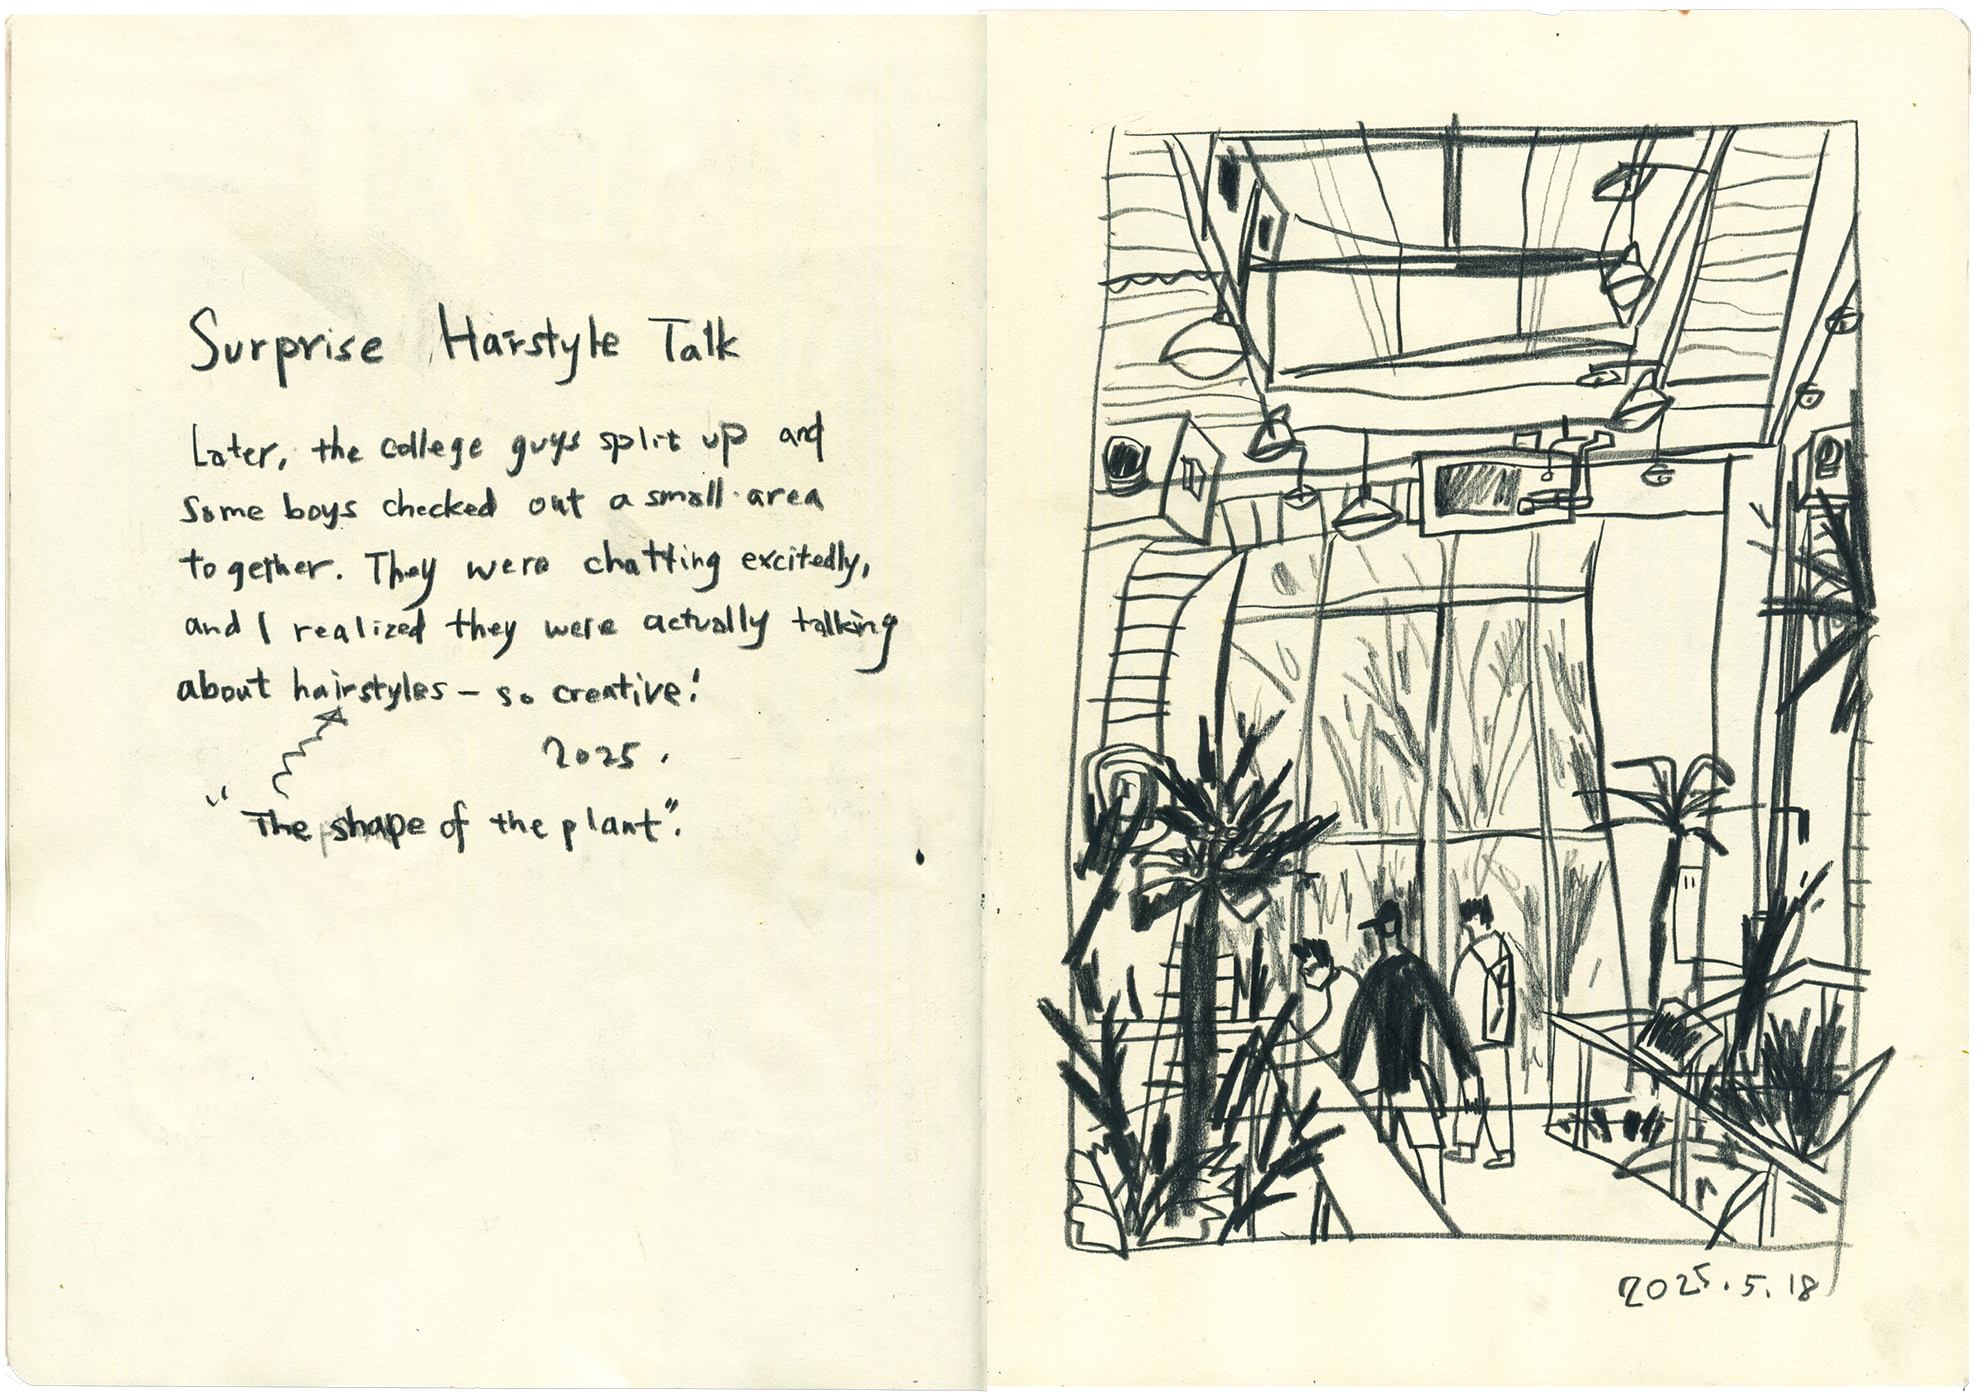 Surprise Hairstyle Talk
Later, the college guys split up and
some boys checked out a small area
together. They were chatting excitedly,
and I realized they were actually talking
about hairstyles – so creative!
2025.
"The shape of the plant".
2025.5.18